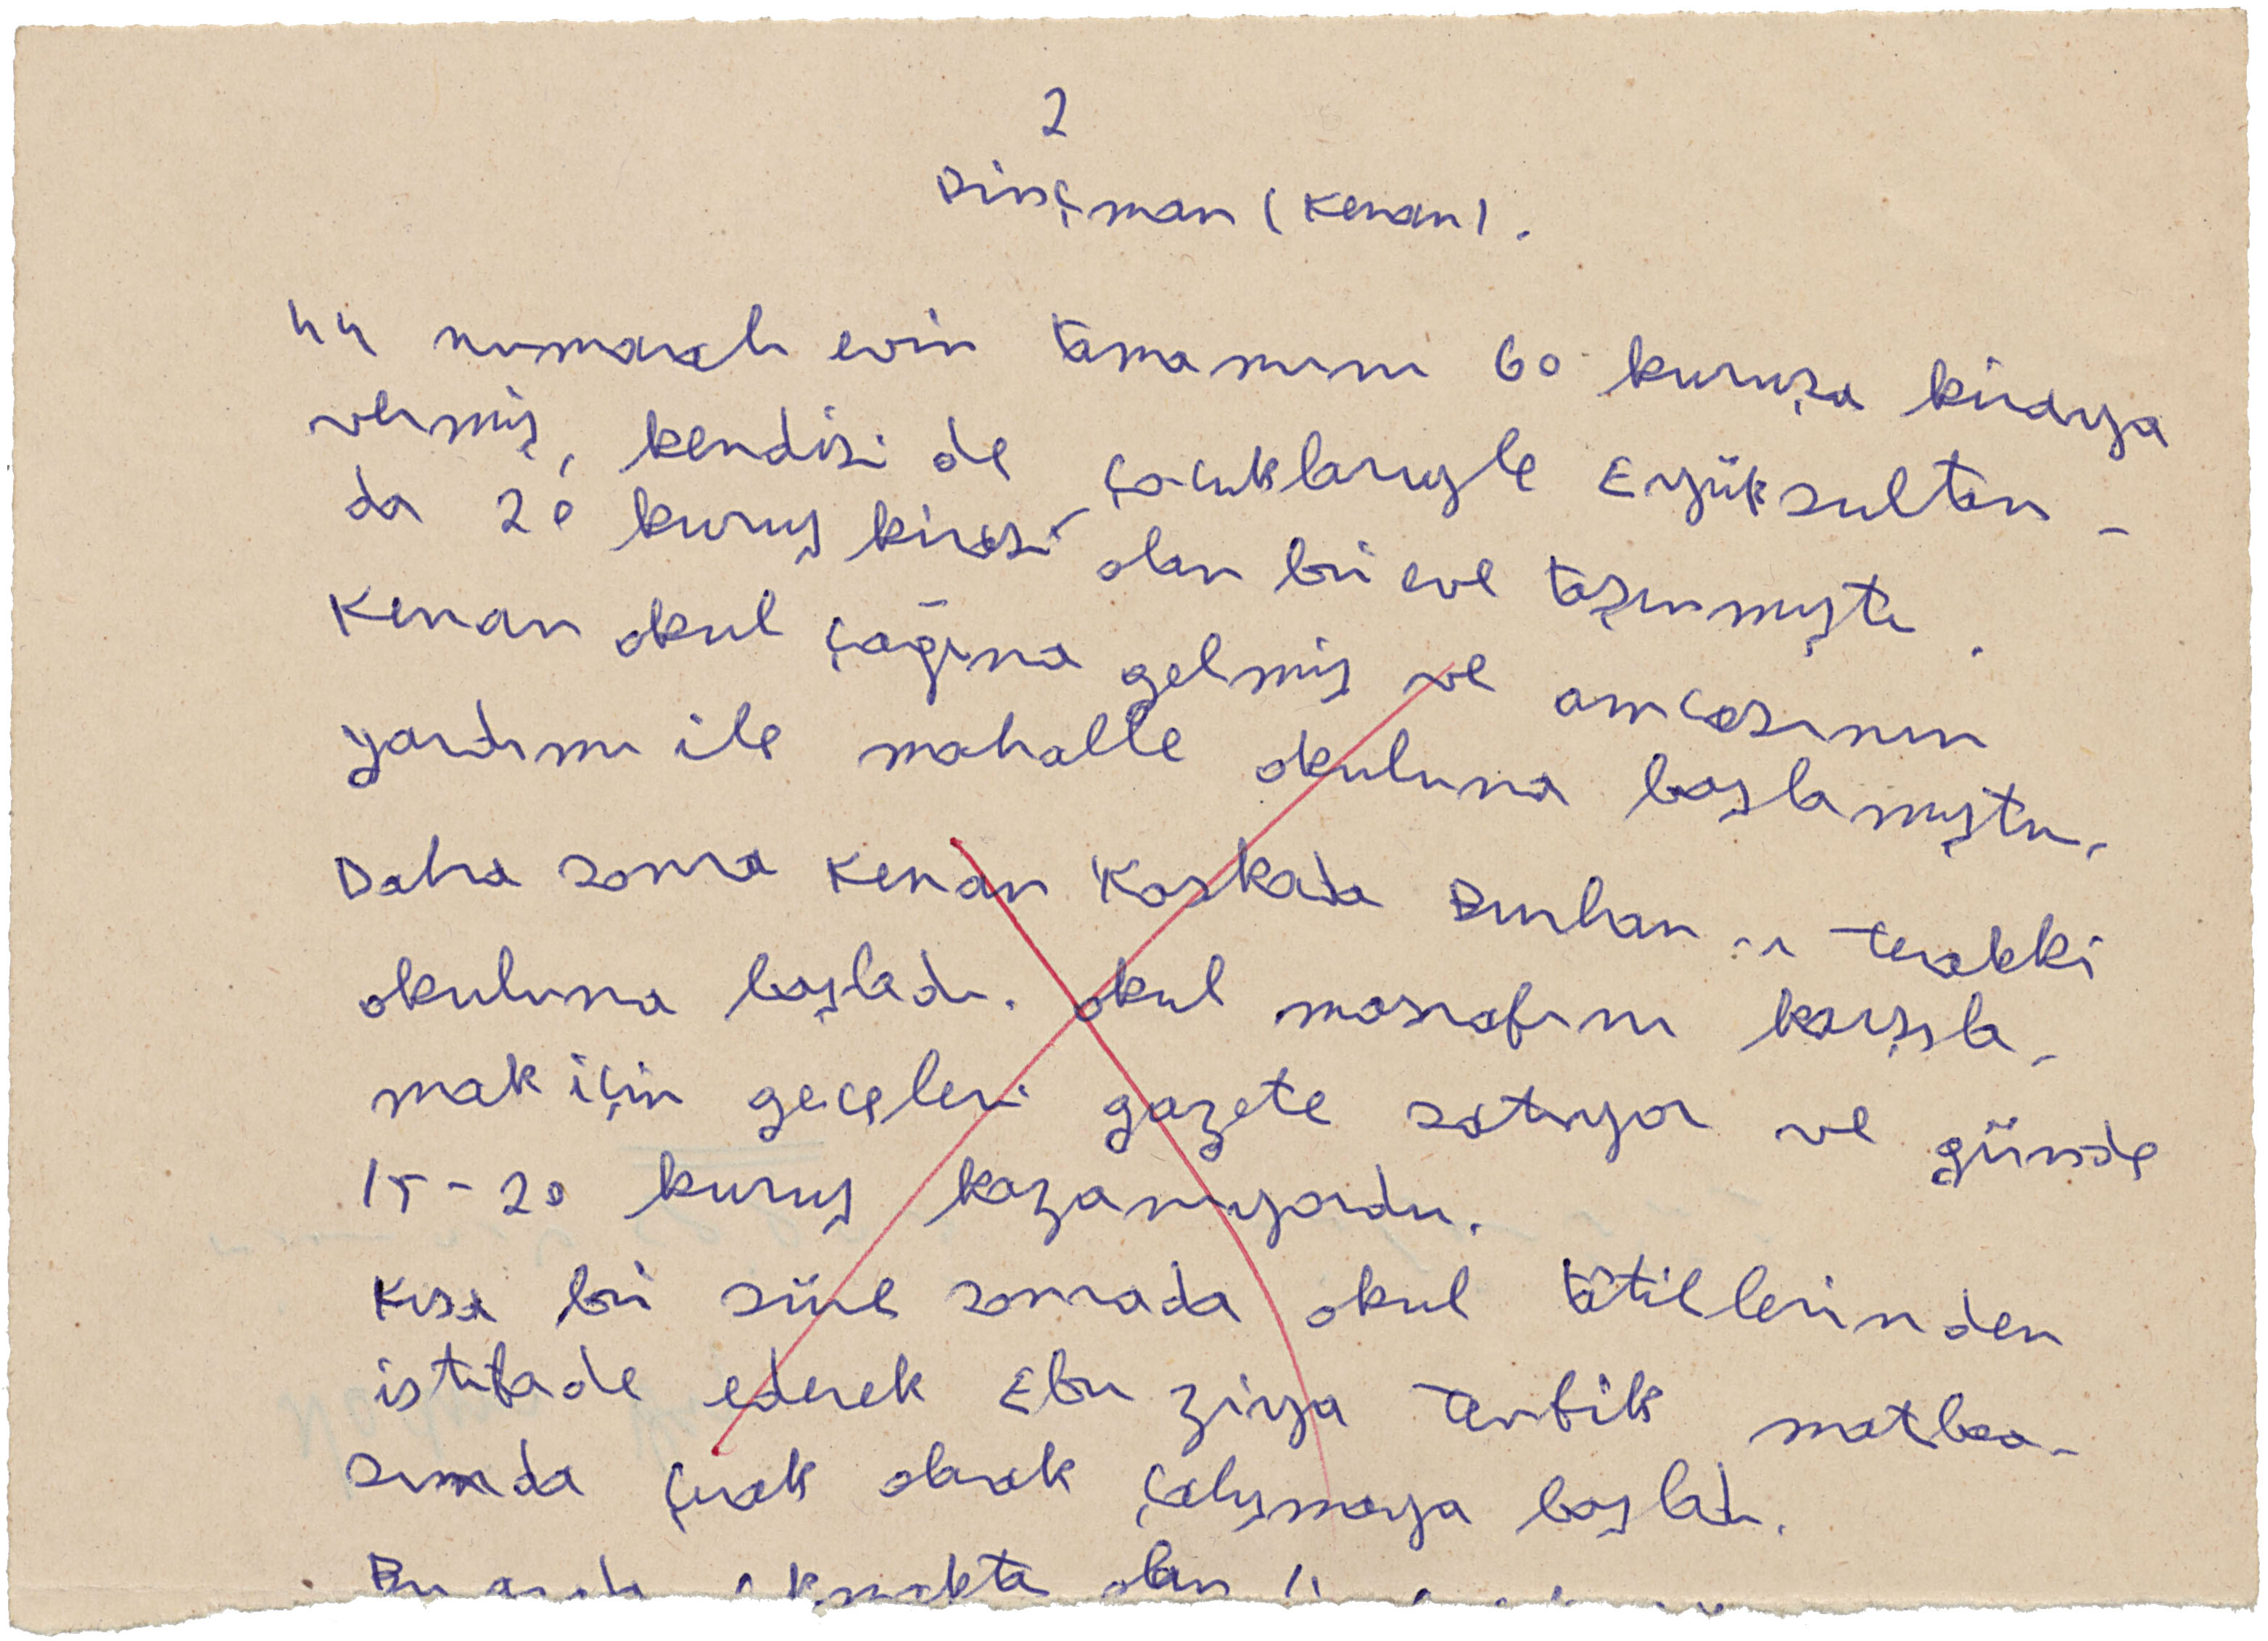 2
Dinçman (Kenan).
44 numaralı evin tamamını 60 kuruşa kiraya
vermiş, kendisi de çocuklarıyle Eyüksultan-
da 20 kuruş kirası olan bir eve taşınmıştı.
Kenan okul çağına gelmiş ve amcasının
yardımı ile mahalle okuluna başlamıştı.
Daha sonra Kenan Koskada Burhan-ı terakki
okuluna başladı. Okul masrafını karşıla-
mak için geceleri gazete satıyor ve günde
15-20 kuruş kazanıyordu.
Kısa bir süre sonrada okul tâtillerinden
istifade ederek Ebu Ziya Tevfik matbaa-
sında çırak olarak çalışmaya başladı.
Bu arada çıkmakta olan